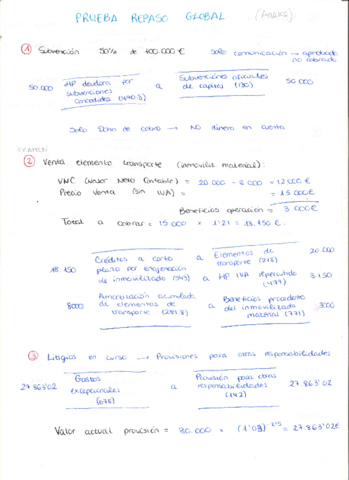 PRUEBA REPASO GLOBAL
① Subvención 50% de 100.000 € Solo comunicación → aprobado
no cobrado
50.000 HP deudora por subvenciones concedidas (4708) a Subvenciones oficiales de capital (130) 50.000
Solo Dchn de cobro → NO dinero en cuenta
EXAMEN
② Venta elemento transporte (inmoviliz material):
VNC (Valor Neto Contable) = 20 000 - 8 000 = 12 000 €
Precio Venta (sin IVA) = = 15 000€
Beneficios operación = 3 000€
Total a cobrar = 15 000 × 1'21 = 18.150 €.
18.150 Créditos a corto plazo por enajenación de inmovilizado (543) a Elementos de transporte (218) 20.000
a HP IVA repercutido (477) 3.150
8000 Amortización acumulada de elementos de transporte (2818) a Beneficios procedentes del inmovilizado material (771) 3000
③ Litigios en curso → Provisiones para otras responsabilidades
27.863'02 Gastos excepcionales (678) a Provisión para otras responsabilidades (142) 27.863'02
Valor actual provisión = 30.000 × (1'03)⁻²'⁵ = 27.863'02€